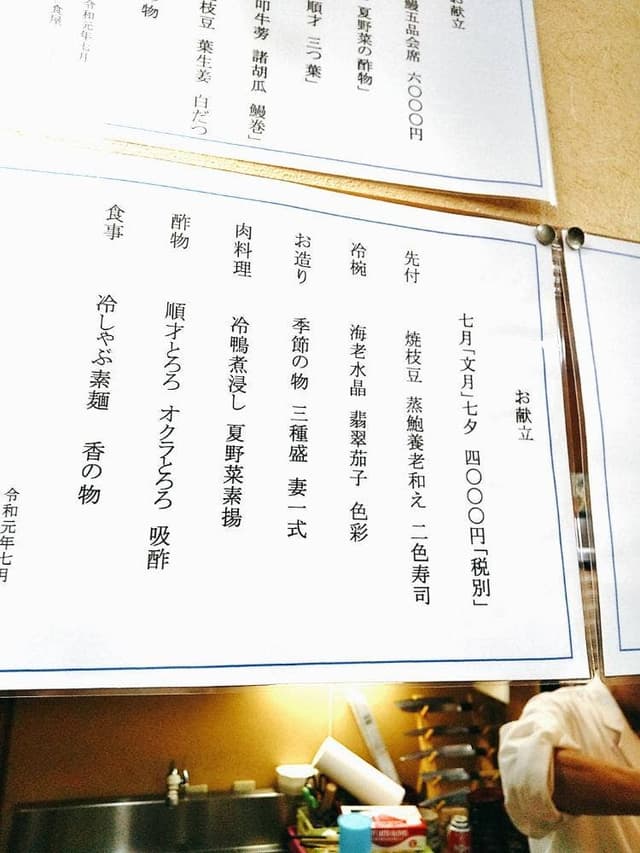 お献立
鰻五品会席 六〇〇〇円
夏野菜の酢物」
順才 三つ葉」
叩牛蒡 諸胡瓜 鰻巻」
枝豆 葉生姜 白だつ
物
令和元年七月
食屋
お献立
七月「文月」七夕 四〇〇〇円「税別」
先付 焼枝豆 蒸鮑養老和え 二色寿司
冷椀 海老水晶 翡翠茄子 色彩
お造り 季節の物 三種盛 妻一式
肉料理 冷鴨煮浸し 夏野菜素揚
酢物 順才とろろ オクラとろろ 吸酢
食事 冷しゃぶ素麺 香の物
令和元年七月